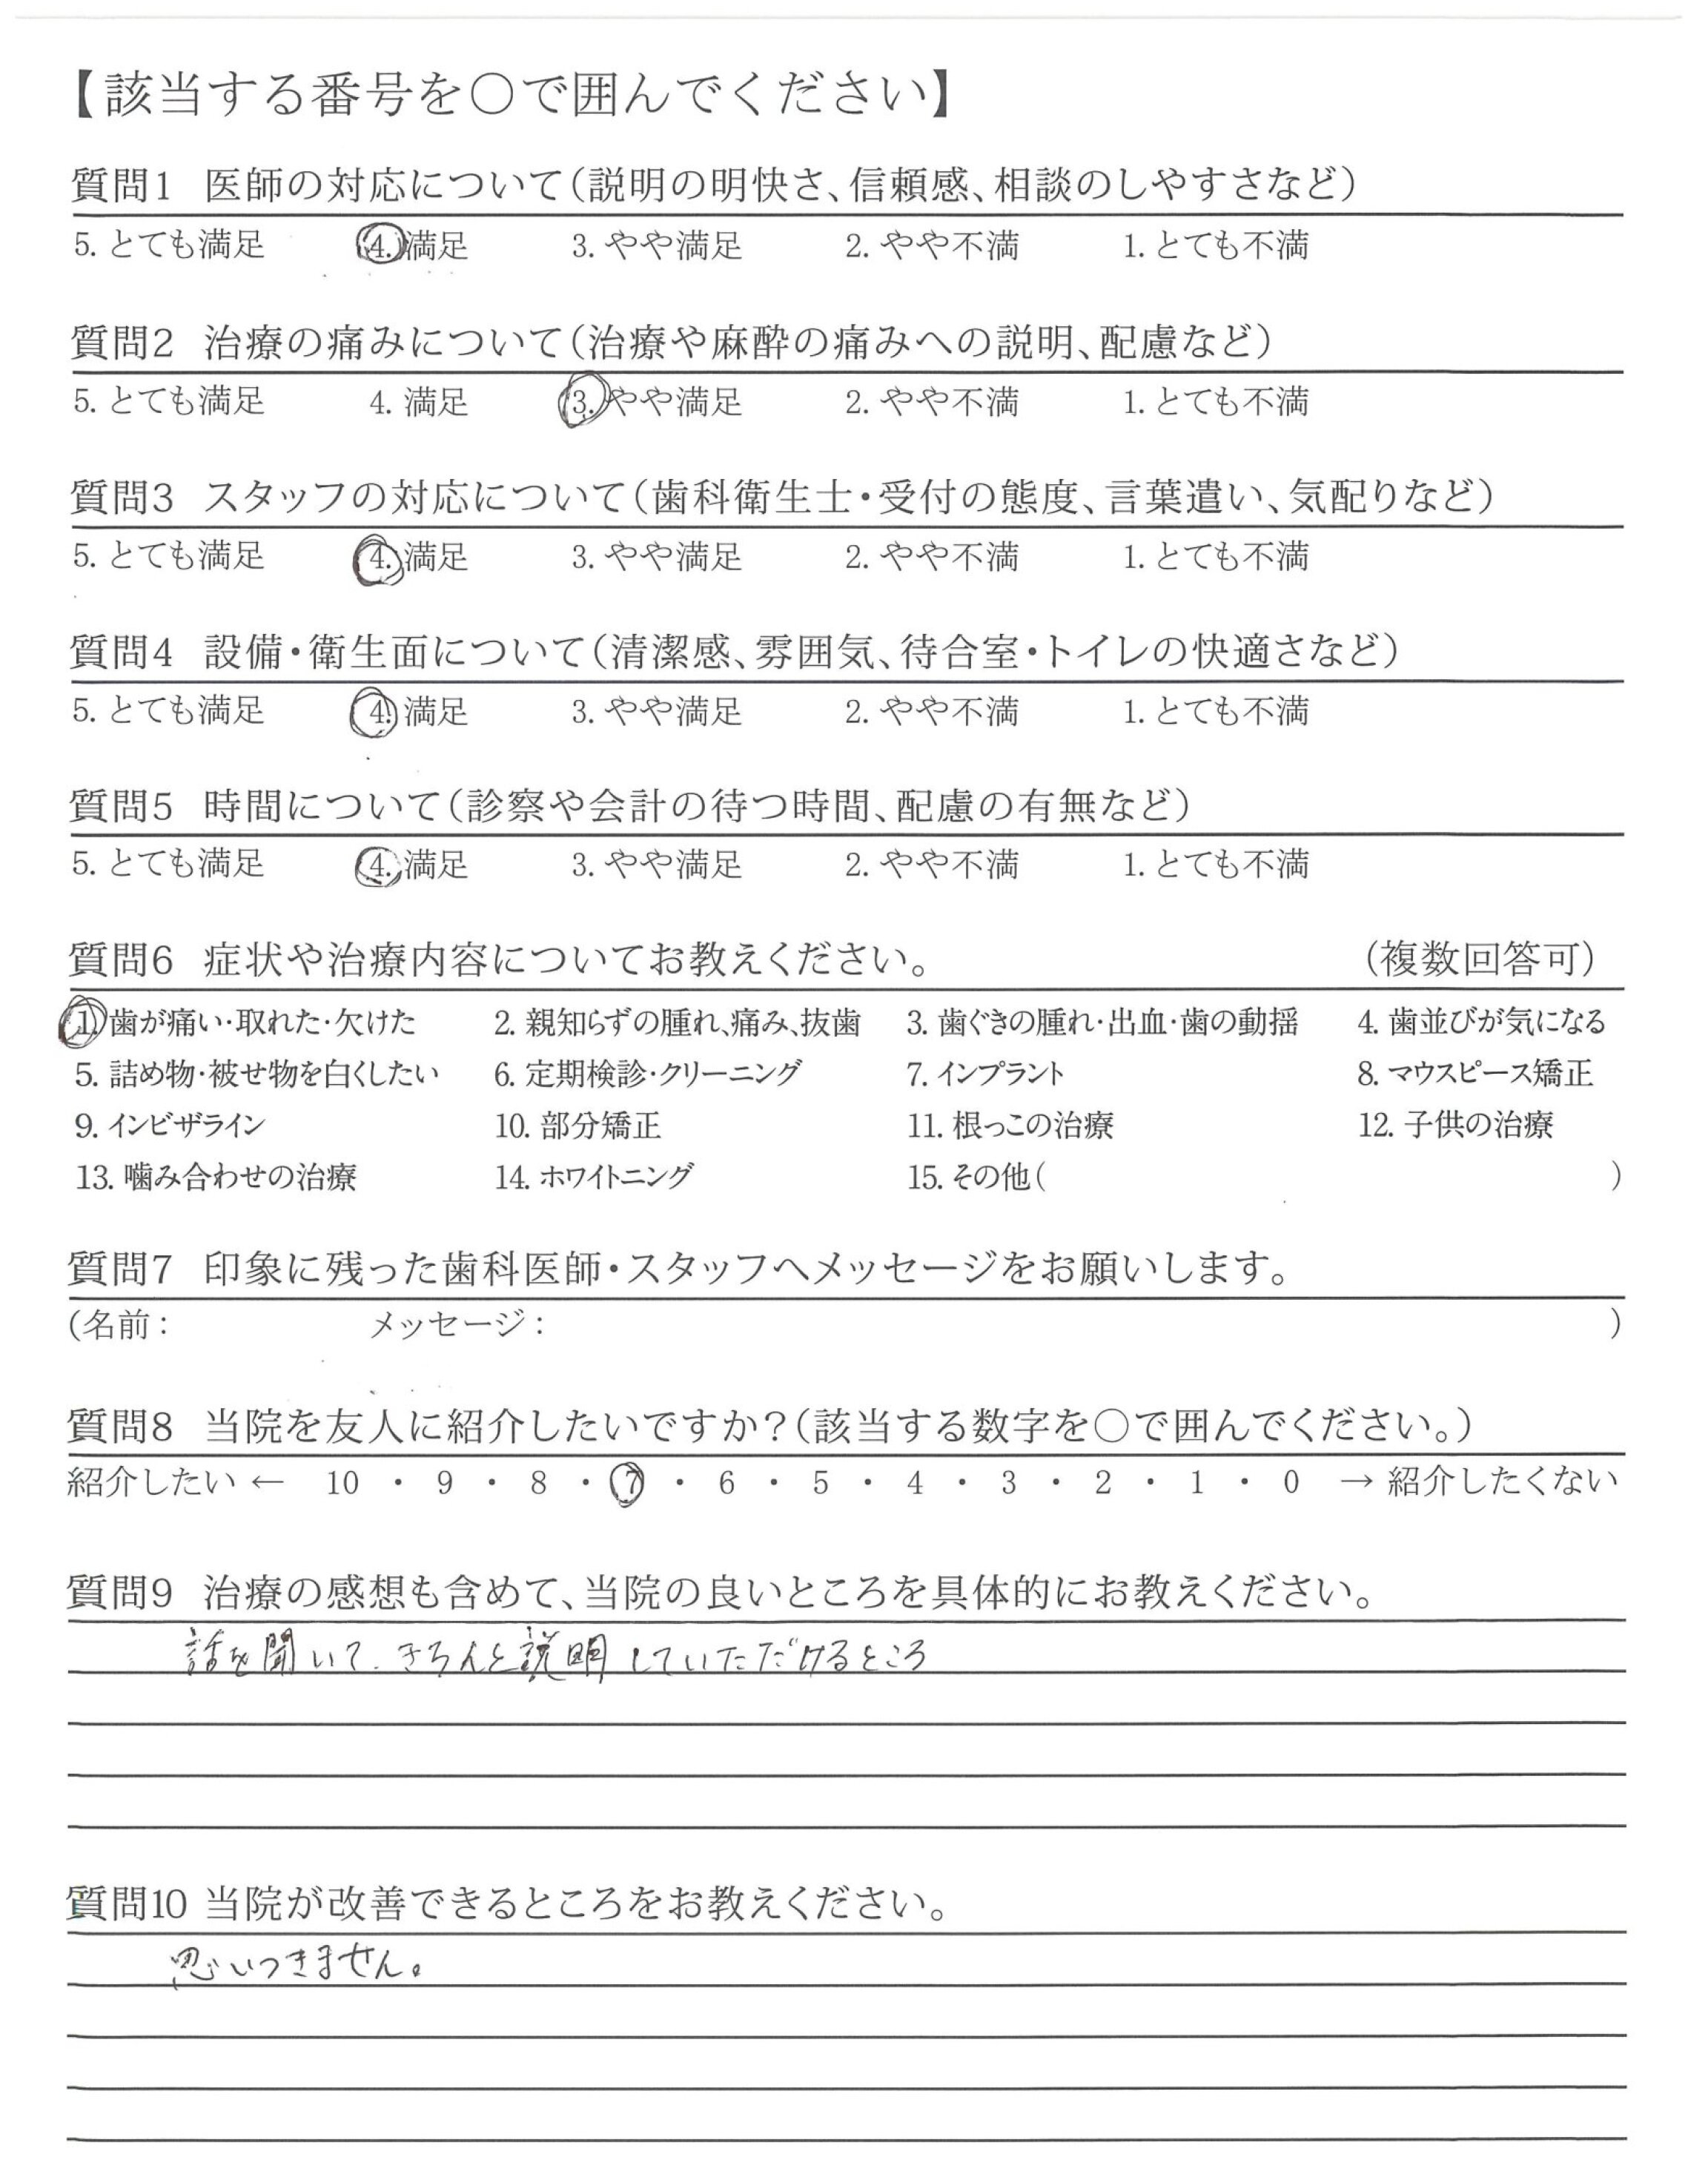 【該当する番号を〇で囲んでください】
質問1 医師の対応について(説明の明快さ、信頼感、相談のしやすさなど)
5. とても満足 4. 満足 3. やや満足 2. やや不満 1. とても不満
質問2 治療の痛みについて(治療や麻酔の痛みへの説明、配慮など)
5. とても満足 4. 満足 3. やや満足 2. やや不満 1. とても不満
質問3 スタッフの対応について(歯科衛生士・受付の態度、言葉遣い、気配りなど)
5. とても満足 4. 満足 3. やや満足 2. やや不満 1. とても不満
質問4 設備・衛生面について(清潔感、雰囲気、待合室・トイレの快適さなど)
5. とても満足 4. 満足 3. やや満足 2. やや不満 1. とても不満
質問5 時間について(診察や会計の待つ時間、配慮の有無など)
5. とても満足 4. 満足 3. やや満足 2. やや不満 1. とても不満
質問6 症状や治療内容についてお教えください。 (複数回答可)
1. 歯が痛い・取れた・欠けた 2. 親知らずの腫れ、痛み、抜歯 3. 歯ぐきの腫れ・出血・歯の動揺 4. 歯並びが気になる
5. 詰め物・被せ物を白くしたい 6. 定期検診・クリーニング 7. インプラント 8. マウスピース矯正
9. インビザライン 10. 部分矯正 11. 根っこの治療 12. 子供の治療
13. 噛み合わせの治療 14. ホワイトニング 15. その他( )
質問7 印象に残った歯科医師・スタッフへメッセージをお願いします。
(名前: メッセージ: )
質問8 当院を友人に紹介したいですか?(該当する数字を〇で囲んでください。)
紹介したい ← 10 ・ 9 ・ 8 ・ 7 ・ 6 ・ 5 ・ 4 ・ 3 ・ 2 ・ 1 ・ 0 → 紹介したくない
質問9 治療の感想も含めて、当院の良いところを具体的にお教えください。
話を聞いて、きちんと説明していただけるところ
質問10 当院が改善できるところをお教えください。
思いつきません。